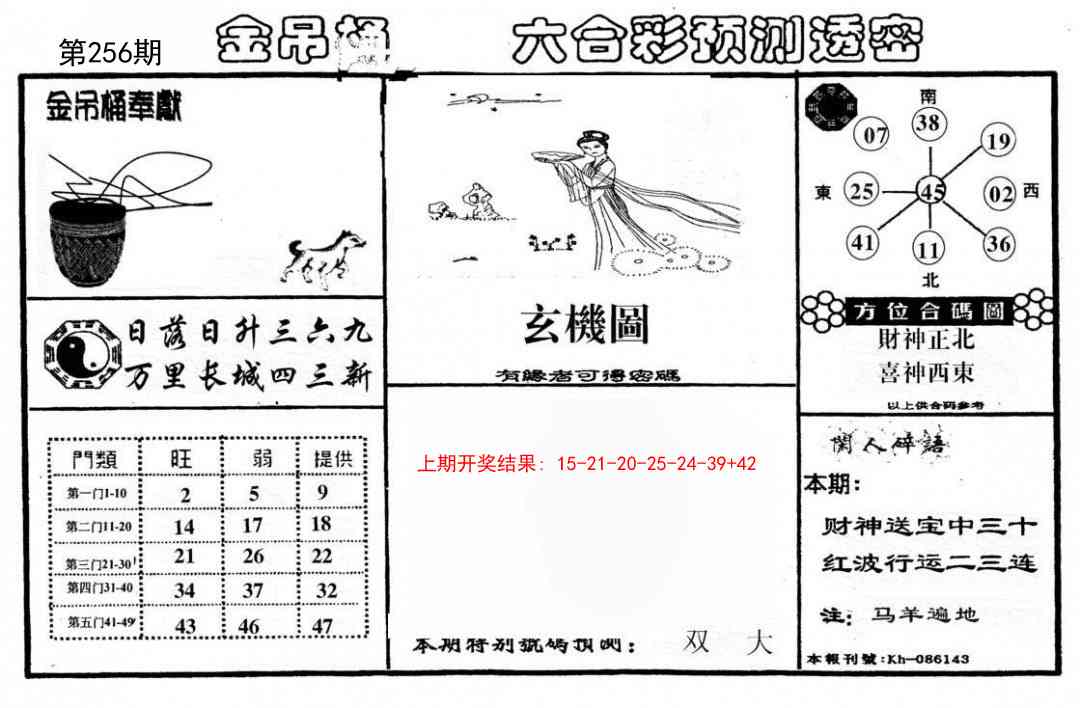 第256期
金吊桶 六合彩预测透密
金吊桶奉獻
日落日升三六九
万里长城四三新
門類 旺 弱 提供
第一门1-10 2 5 9
第二门11-20 14 17 18
第三门21-30 21 26 22
第四门31-40 34 37 32
第五门41-49 43 46 47
玄機圖
有緣者可得密碼
上期开奖结果: 15-21-20-25-24-39+42
本期特别號码預测: 双 大
南
07 38 19
東 25 45 02 西
41 11 36
北
方位合碼圖
財神正北
喜神西東
以上供合码参考
閑人碎語
本期:
财神送宝中三十
红波行运二三连
注: 马羊遍地
本報刊號:Kh-086143